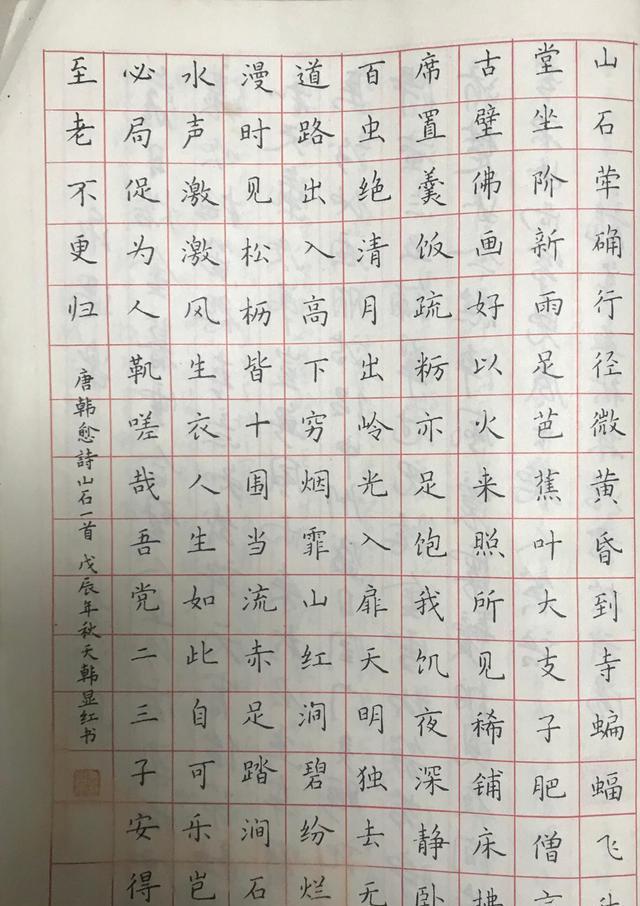 山石荦确行径微黄昏到寺蝙蝠飞
堂坐阶新雨足芭蕉叶大支子肥僧
古壁佛画好以火来照所见稀铺床拂
席置羹饭疏粝亦足饱我饥夜深静卧
百虫绝清月出岭光入扉天明独去无
道路出入高下穷烟霏山红涧碧纷烂
漫时见松枥皆十围当流赤足踏涧石
水声激激风生衣人生如此自可乐岂
必局促为人嗟哉吾党二三子安得
至老不更归 唐韩愈詩山石一首 戊辰年秋天韩显红书